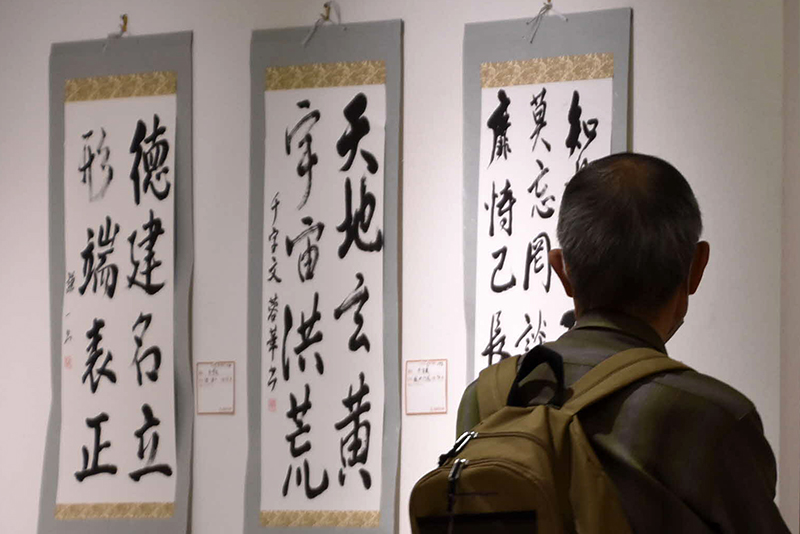 德建名立
形端表正
天地玄黃
宇宙洪荒
千字文
知
莫忘罔談
靡恃己長